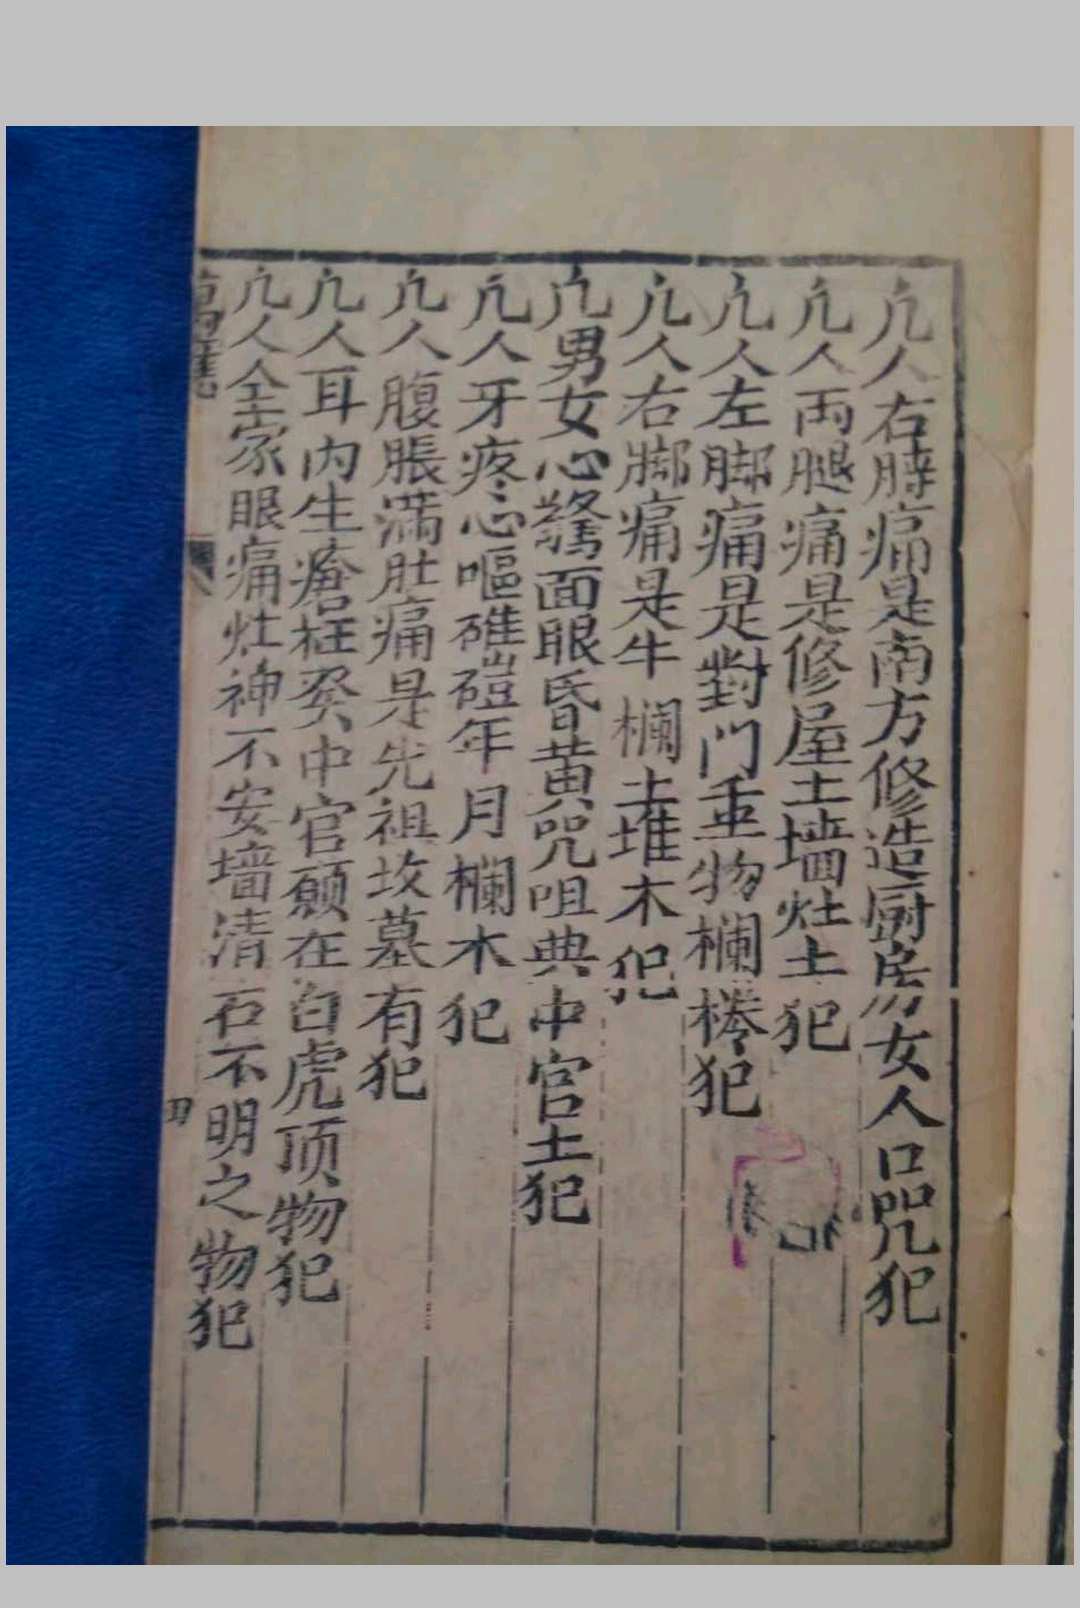 凢人右膊痛是南方修造厨房女人口咒犯
凢人両腿痛是修屋土墙灶土犯
凢人左脚痛是對門重物欄楼犯
凢人右脚痛是牛欄土堆木犯
凢男女心驚面眼昏黄咒咀典中宫土犯
凢人牙疼心嘔碓磑年月欄木犯
凢人腹脹満肚痛是先祖坟墓有犯
凢人耳内生瘡枉癸中官願在白虎顶物犯
凢人全家眼痛灶神不安墙清石不明之物犯